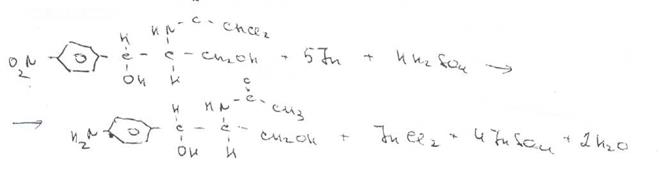 HN - C - CHCl2
O2N - C - C - CH2OH + 5Zn + 4H2SO4 →
H H
OH H
→ H2N - C - C - CH2OH + ZnCl2 + 4ZnSO4 + 2H2O
H HN - C - CH3
OH H